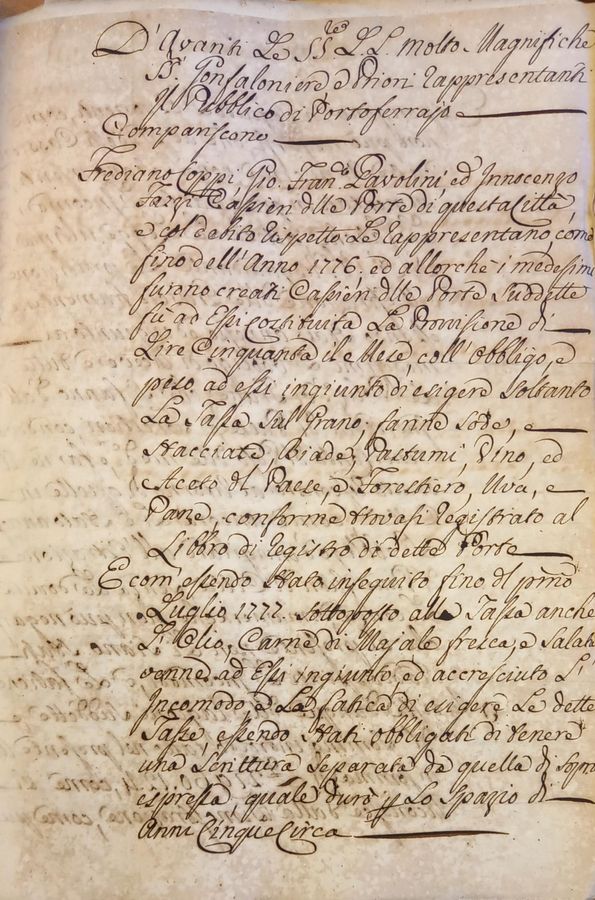 D'Avanti Le SS.rie L.L. Molto Magnifiche
SS.ri Gonfaloniere e Priori Rappresentanti
Il Pubblico di Portoferrajo
Compariscono
Frediano Coppi, Gio. Fran.co Pavolini, ed Innocenzo
Fazzi Cassieri dlle Porte di questa Città
e col debito rispetto Le Rappresentano, come
fino dell'Anno 1776. ed allorchè i medesimi
furono creati Cassieri dlle Porte suddette
fù ad Essi Costituita La Provisione di
Lire Cinquanta il Mese coll'obbligo, e
peso ad essi ingiunto di esigere soltanto
La Tassa sul Grano, farine sode, e
stacciate, Biade, Pastumi, Vino, ed
Aceto dl Paese, e Forestiero, Uva, e
Pane, conforme trovasi registrato al
Libbro di registro di dette Porte
E com'essendo stato inseguito fino dl primo
Luglio 1777. sottoposto alle Tasse anche
L'Olio, Carne di Majale fresca, e salata
venne ad Essi ingiunto, ed accresciuto L'
Incomodo e La fatica di esigere Le dette
Tasse, essendo stati obbligati di tenere
una scrittura separata da quella di sopra
espressa, quale durò p Lo spazio di
Anni Cinque Circa